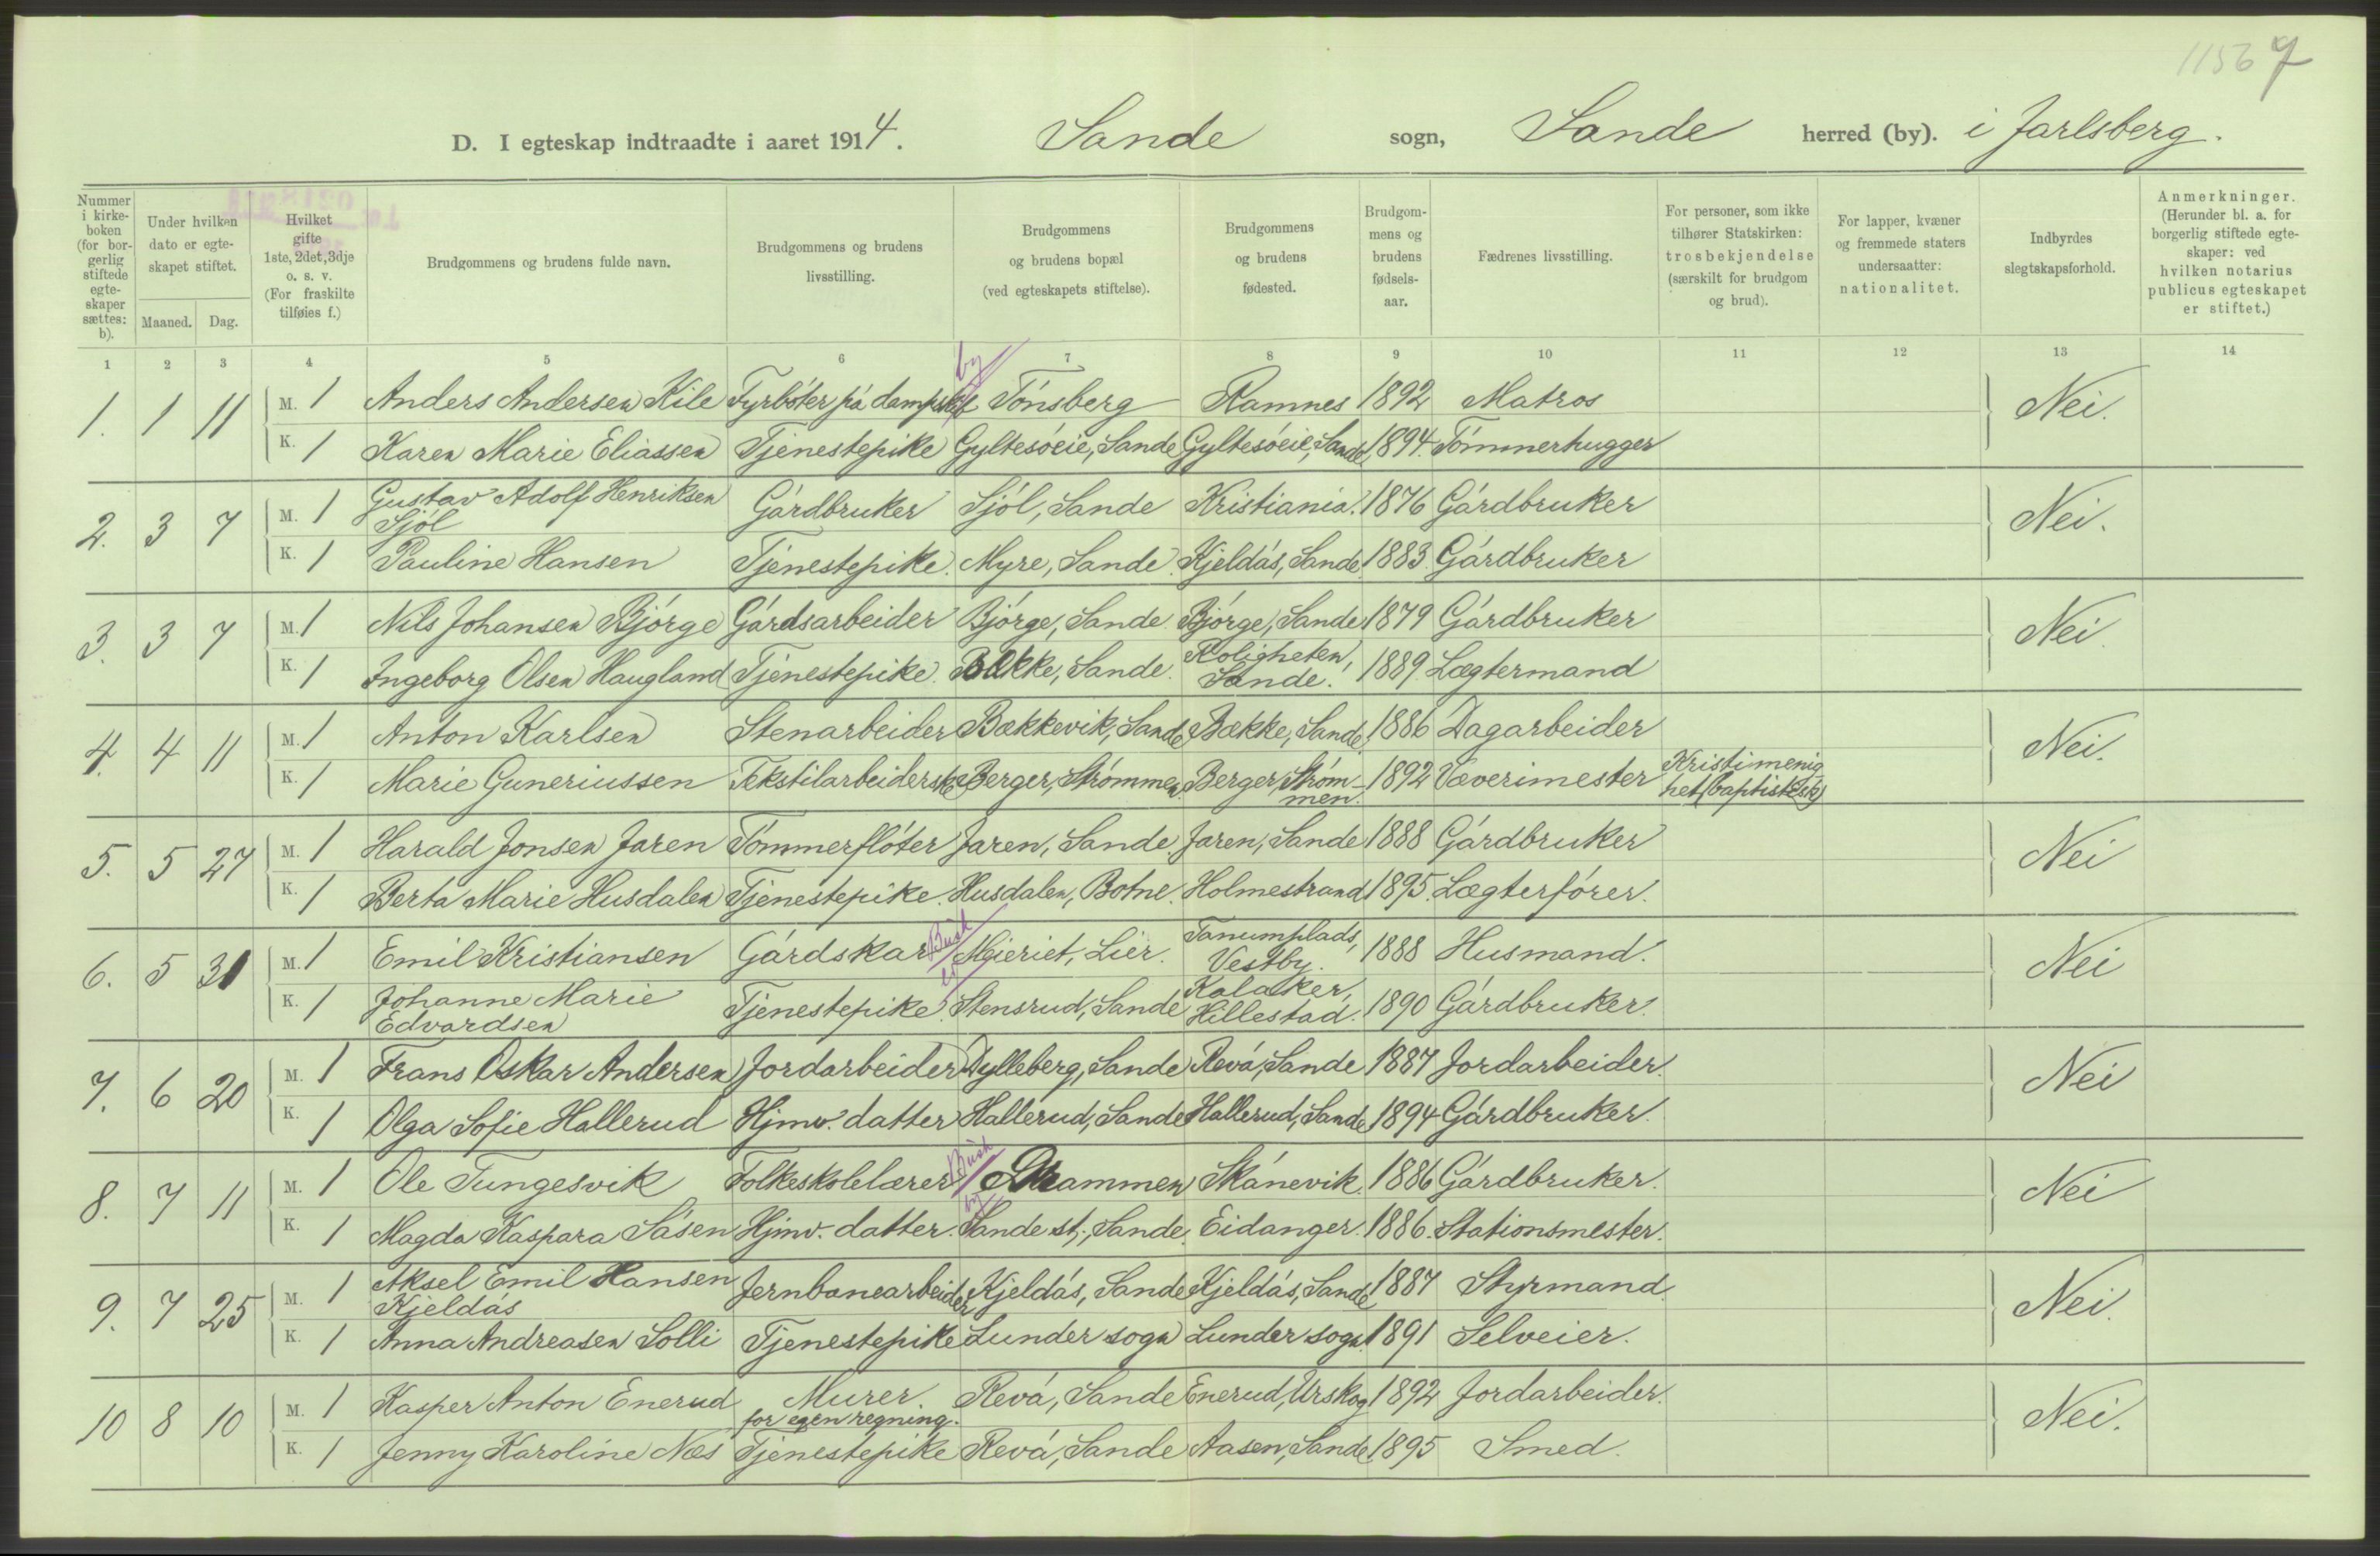 1156 7
D. I egteskap indtraadte i aaret 1914. Sande sogn, Sande herred (by). i Jarlsberg.
Nummer i kirkeboken (for borgerlig stiftede egteskaper sættes: b).
Under hvilken dato er egteskapet stiftet.
Maaned. Dag.
Hvilket gifte 1ste, 2det, 3dje o. s. v. (For fraskilte tilføies f.)
Brudgommens og brudens fulde navn.
Brudgommens og brudens livsstilling.
Brudgommens og brudens bopæl (ved egteskapets stiftelse).
Brudgommens og brudens fødested.
Brudgommens og brudens fødselsaar.
Fædrenes livsstilling.
For personer, som ikke tilhører Statskirken: trosbekjendelse (særskilt for brudgom og brud).
For lapper, kvæner og fremmede staters undersaatter: nationalitet.
Indbyrdes slegtskapsforhold.
Anmerkninger. (Herunder bl. a. for borgerlig stiftede egteskaper: ved hvilken notarius publicus egteskapet er stiftet.)
1 2 3 4 5 6 7 8 9 10 11 12 13 14
1. 1 11 M. 1 Anders Andersen Kile Fyrbøter på dampskib by Tönsberg Ramnes 1892 Matros Nei.
K. 1 Karen Marie Eliassen Tjenestepike Gyltesöeie, Sande Gyltesöeie, Sande 1894. Tömmerhugger
2. 3 7 M. 1 Gustav Adolf Henriksen Sjöl Gårdbruker Sjöl, Sande Kristiania. 1876 Gårdbruker Nei.
K. 1 Pauline Hansen Tjenestepike. Myre, Sande. Kjeldås, Sande. 1883 Gårdbruker
3. 3 7 M. 1 Nils Johansen Bjørge Gårdsarbeider Bjørge, Sande. Bjørge, Sande 1879 Gårdbruker Nei.
K. 1 Ingeborg Olsen Haugland Tjenestepike. Bække, Sande. Roligheten, Sande. 1889. Lægtermand
4. 4 11 M. 1 Anton Karlsen Stenarbeider Bækkevik, Sande Bække, Sande 1886 Dagarbeider Nei.
K. 1 Marie Guneriussen Tekstilarbeiderske Berger, Strømmen. Berger, Strømmen. 1892 Væverimester Kristimenighet (baptistisk)
5. 5 27 M. 1 Harald Jonsen Jaren Tömmerflöter Jaren, Sande. Jaren, Sande 1888 Gårdbruker Nei
K. 1 Berta Marie Husdalen Tjenestepike. Husdalen, Botne. Holmestrand 1895. Lægterfører.
6. 5 31 M. 1 Emil Kristiansen Gårdskar Busk Meieriet, Lier. Tanumplads, Vestby. 1888 Husmand. Nei
K. 1 Johanne Marie Edvardsen Tjenestepike. Stensrud, Sande Kolaker, Hillestad. 1890 Gårdbruker.
7. 6 20 M. 1 Frans Oskar Andersen Jordarbeider Dylleberg, Sande Revå, Sande 1887 Jordarbeider. Nei
K. 1 Olga Sofie Hallerud Hjmv. datter Hallerud, Sande Hallerud, Sande 1894 Gårdbruker.
8. 7 11 M. 1 Ole Tungesvik Folkeskolelærer Busk by Drammen Skånevik. 1886 Gårdbruker. Nei
K. 1 Magda Kaspara Såsen Hjmv. datter. Sande st., Sande. Eidanger. 1886. Stationsmester.
9. 7 25 M. 1 Aksel Emil Hansen Kjeldås Jernbanearbeider Kjeldås, Sande Kjeldås, Sande 1887 Styrmand. Nei.
K. 1 Anna Andreasen Solli Tjenestepike Lunder sogn Lunder sogn. 1891 Selveier.
10 8 10 M. 1 Kasper Anton Enerud Murer. for egen regning. Revå, Sande Enerud, Urskog 1892 Jordarbeider. Nei.
K. 1 Jenny Karoline Næs Tjenestepike Revå, Sande Aasen, Sande 1895 Smed.